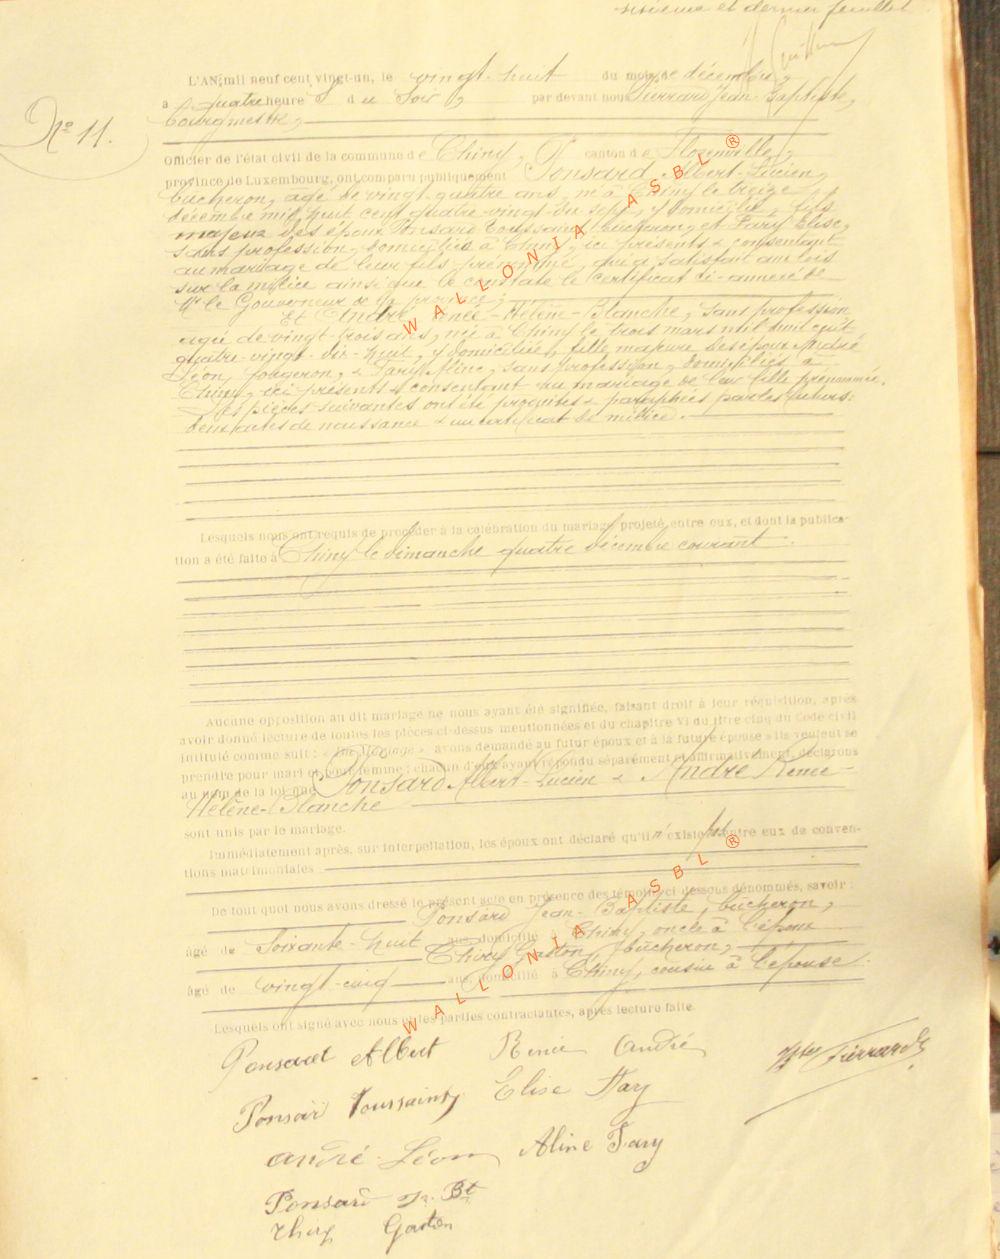 sixième et dernier feuillet
Nº 11.
L'AN mil neuf cent vingt-un, le vingt-huit du mois de décembre,
a quatre heures du soir, par devant nous Pierrard Jean-Baptiste,
bourgmestre,
Officier de l'état civil de la commune de Chiny, canton de Florenville,
province de Luxembourg, ont comparu publiquement Ponsard Albert-Lucien,
bucheron, âgé de vingt-quatre ans, né à Chiny le treize
décembre mil huit cent quatre-vingt-dix sept, y domicilié, fils
majeur des époux Ponsard Toussaint, bucheron, et Fary Elise,
sans profession, domiciliés à Chiny, ici présents & consentant
au mariage de leur fils prénommé, qui a satisfait aux lois
sur la milice ainsi que le constate le certificat ci-annexé de
Mr le Gouverneur de la province;
Et André Renée-Hélène-Blanche, sans profession
agée de vingt-trois ans, née à Chiny le trois mars mil huit cent
quatre-vingt-dix-huit, y domiciliée, fille majeure des époux André
Léon, forgeron, & Fary Aline, sans profession, domiciliés à
Chiny, ici présents & consentant au mariage de leur fille prénommée.
Les pièces suivantes ont été produites & paraphées par les futurs:
deux actes de naissance & un certificat de milice.
Lesquels nous ont requis de procéder à la célébration du mariage projeté entre eux, et dont la publica-
tion a été faite à Chiny le dimanche quatre décembre courant.
Aucune opposition au dit mariage ne nous ayant été signifiée, faisant droit à leur réquisition, après
avoir donné lecture de toutes les pièces ci-dessus mentionnées et du chapitre VI du titre cinq du Code civil
intitulé comme suit : « Du Mariage » avons demandé au futur époux et à la future épouse s'ils veulent se
prendre pour mari et pour femme ; chacun d'eux ayant répondu séparément et affirmativement, déclarons
au nom de la loi que Ponsard Albert-Lucien & André Renée-
Hélène-Blanche
sont unis par le mariage.
Immédiatement après, sur interpellation, les époux ont déclaré qu'il n'existe pas entre eux de conven-
tions matrimoniales
De tout quoi nous avons dressé le présent acte en présence des témoins ci-dessous dénommés, savoir :
Ponsard Jean-Baptiste, bucheron,
âgé de soixante-huit ans, domicilié à Chiny, oncle à l'époux
Thiry Gaston, bucheron,
âgé de vingt-cinq ans, domicilié à Chiny, cousin à l'épouse.
Lesquels ont signé avec nous et les parties contractantes, après lecture faite
Ponsard Albert Renée André Pierrard
Ponsard Toussaint Elise Fary
André Léon Aline Fary
Ponsard J. Bt
Thiry Gaston
WALLONIA ASBL ®
WALLONIA ASBL ®